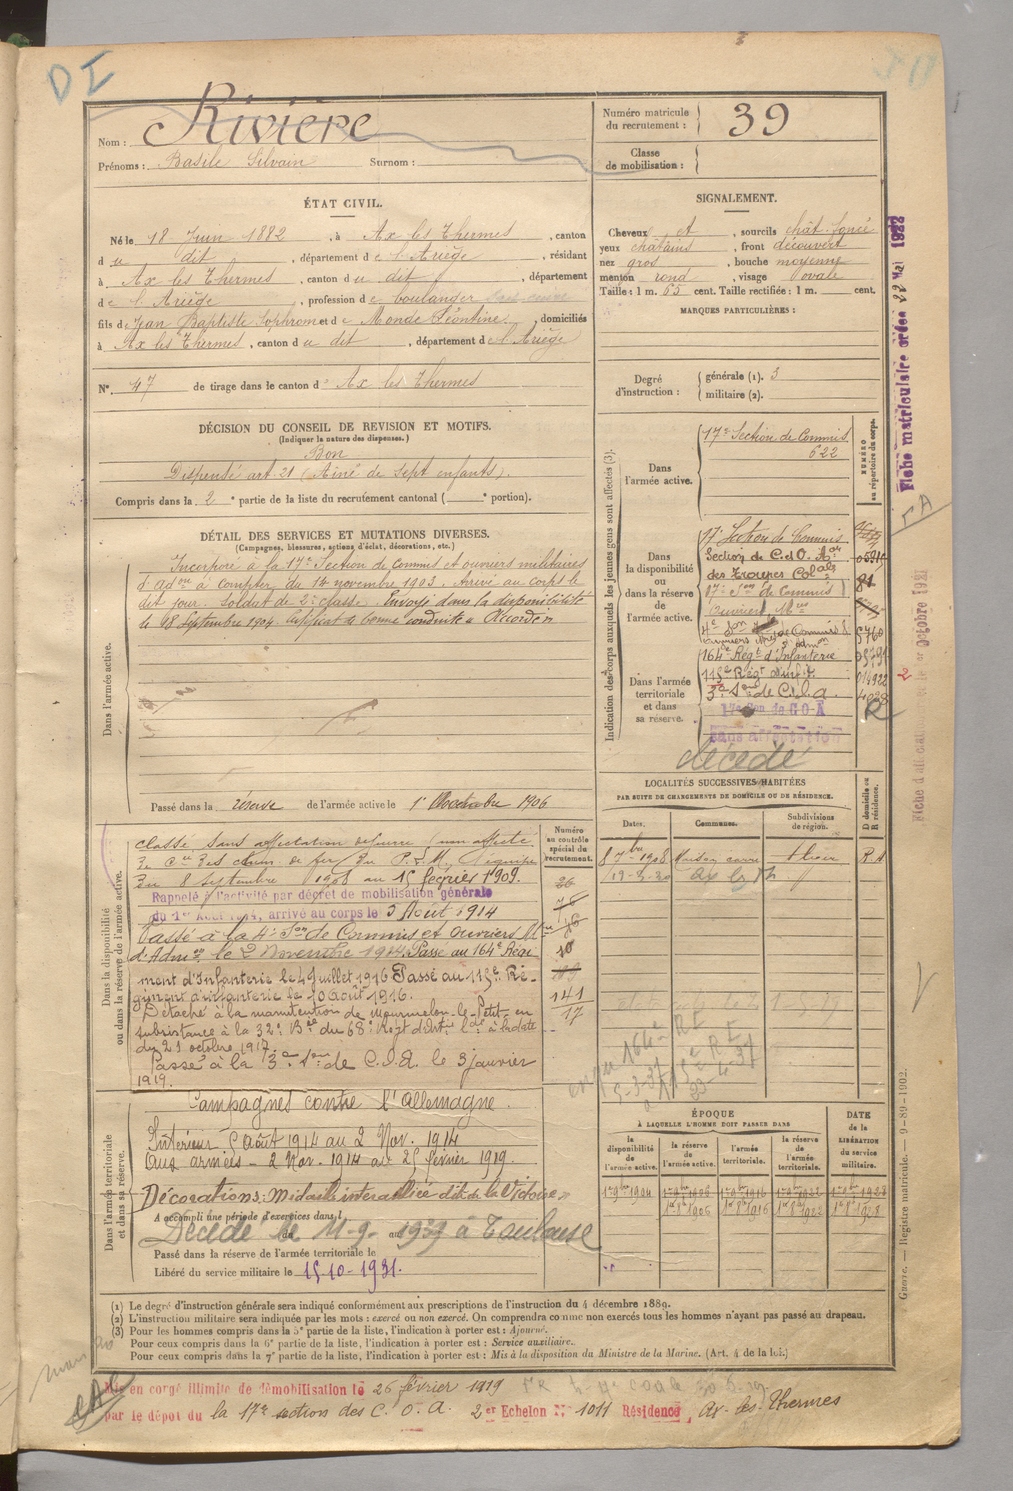 D I
Rivière
Nom :
Prénoms : Basile Silvain Surnom :
Numéro matricule
du recrutement : 39
Classe
de mobilisation :
ÉTAT CIVIL.
Né le 18 Juin 1882, à Ax les Thermes, canton
du dit, département de l'Ariège, résidant
à Ax les Thermes, canton du dit, département
de l'Ariège, profession de boulanger
fils de Jean Baptiste Sophrom et de Monde Léontine, domiciliés
à Ax les Thermes, canton du dit, département de l'Ariège
N° 47 de tirage dans le canton d' Ax les Thermes
SIGNALEMENT.
Cheveux et, sourcils chât. foncé
yeux châtains, front découvert
nez gros, bouche moyenne
menton rond, visage ovale
Taille : 1 m. 65 cent. Taille rectifiée : 1 m. cent.
MARQUES PARTICULIÈRES :
Degré
d'instruction :
générale (1). 3
militaire (2).
DÉCISION DU CONSEIL DE REVISION ET MOTIFS.
(Indiquer la nature des dispenses.)
Bon
Dispensé art. 21 (Ainé de sept enfants).
Compris dans la 2e partie de la liste du recrutement cantonal ( e portion).
DÉTAIL DES SERVICES ET MUTATIONS DIVERSES.
(Campagnes, blessures, actions d'éclat, décorations, etc.)
Dans l'armée active.
Incorporé à la 17e Section de commis et ouvriers militaires
d'adon à compter du 14 novembre 1903. Arrivé au corps le
dit jour. Soldat de 2e classe. Envoyé dans la disponibilité
le 18 Septembre 1904. Certificat de bonne conduite "Accordé"
Passé dans la réserve de l'armée active le 1er Octobre 1906
Indication des corps auxquels les jeunes gens sont affectés (3).
NUMÉRO
au répertoire du corps.
Dans
l'armée active.
17e Section de Commis.
622
Dans
la disponibilité
ou dans la réserve
de
l'armée active.
17e Section de Commis
Section de C.d'O. Aon
des Troupes Colales
81
17e Son de Commis &
ouvriers Mres
4e Son de Commis &
ouvriers Mres d'admon
5760
164e Régt d'Infanterie
Dans l'armée
territoriale
et dans
sa réserve.
115e Régt d'inf.
3e Son de C.O.A.
4028
17e Son de C O A
Sans affectation
décédé
Fiche matriculaire créée 22 Mai 1922
Octobre 1921
LOCALITÉS SUCCESSIVES HABITÉES
PAR SUITE DE CHANGEMENTS DE DOMICILE OU DE RÉSIDENCE.
D domicile ou
R résidence.
Dates.
Communes.
Subdivisions
de région.
8 7bre 1908 Maison carrée Alger R. D
19-8-20 Ax les Th
Dans la disponibilité
ou dans la réserve de l'armée active.
Numéro
au contrôle
spécial du
recrutement.
classé sans affectation définie / non affecté
au 8 Septembre 1908 au 15 février 1909.
Rappelé à l'activité par décret de mobilisation générale
du 1er Août 1914, arrivé au corps le 3 Août 1914
Passé à la 4e Son de Commis et ouvriers Mres
d'Admon le 2 Novembre 1914. Passé au 164e Régi
ment d'Infanterie le 4 Juillet 1916 Passé au 115e Ré-
giment d'infanterie le 10 août 1916.
Détaché à la manutention de Mourmelon-le-Petit en
subsistance à la 32e Bie du 68e Régt d'Artie
du 21 octobre 1917.
Passé à la 3e Son de C.O.A. le 3 janvier
1919.
26
10
141
17
164e R I
115e R I
23-4-37
Dans l'armée territoriale
et dans sa réserve.
Campagnes contre l'allemagne.
Intérieur 3 Août 1914 au 2 Nov. 1914
Aux armées - 2 Nov. 1914 au 25 février 1919.
Décorations : Médaille interalliée dite de la Victoire
A accompli une période d'exercices dans l
Décédé le 11-9-1939 à Toulouse
du au
Passé dans la réserve de l'armée territoriale le
Libéré du service militaire le 15-10-1931.
ÉPOQUE
À LAQUELLE L'HOMME DOIT PASSER DANS
DATE
de la
LIBÉRATION
du service
militaire.
la
disponibilité
de
l'armée active.
la réserve
de
l'armée active.
l'armée
territoriale.
la réserve
de
l'armée
territoriale.
1er 9bre 1904 1er 9bre 1906 1er 9bre 1916 1er 9bre 1922 1er 9bre 1928
1er 8bre 1906 1er 8bre 1916 1er 8bre 1922 1er 8bre 1928
Guerre. — Registre matricule. — 9-89-1902.
(1) Le degré d'instruction générale sera indiqué conformément aux prescriptions de l'instruction du 4 décembre 1889.
(2) L'instruction militaire sera indiquée par les mots : exercé ou non exercé. On comprendra comme non exercés tous les hommes n'ayant pas passé au drapeau.
(3) Pour les hommes compris dans la 5e partie de la liste, l'indication à porter est : Ajourné.
Pour ceux compris dans la 6e partie de la liste, l'indication à porter est : Service auxiliaire.
Pour ceux compris dans la 7e partie de la liste, l'indication à porter est : Mis à la disposition du Ministre de la Marine. (Art. 4 de la loi.)
Mis en congé illimité de démobilisation le 26 février 1919
par le dépôt du la 17e section des C. O. A. 2er Echelon N° 1011 Résidence Ax-les-Thermes